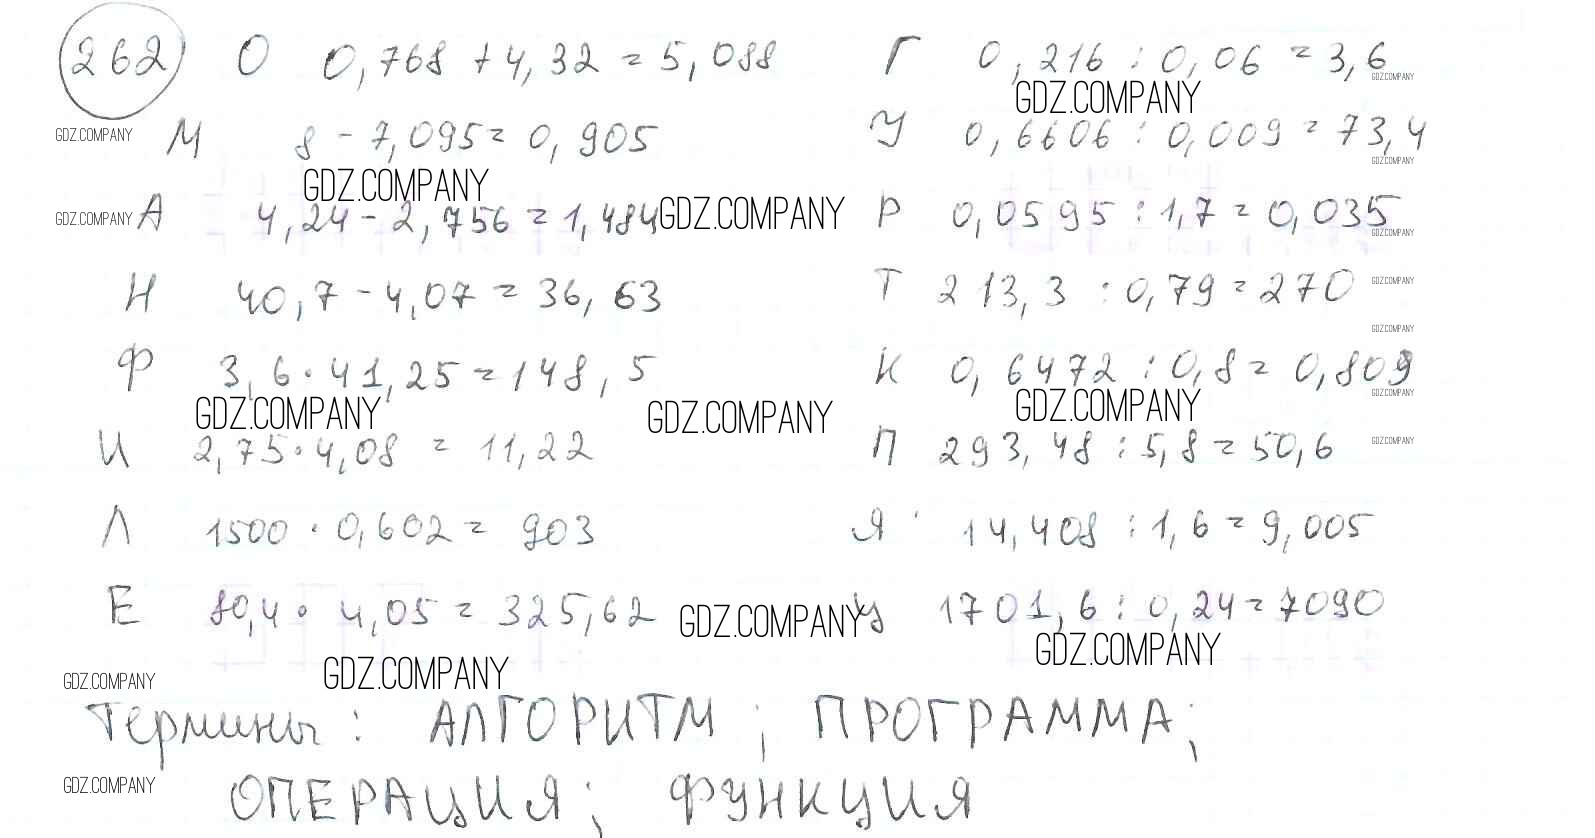 262 О 0,768 + 4,32 = 5,088 Г 0,216 : 0,06 = 3,6
GDZ.COMPANY
GDZ.COMPANY
GDZ.COMPANY М 8 - 7,095 = 0,905 У 0,6606 : 0,009 = 73,4
GDZ.COMPANY
GDZ.COMPANY
GDZ.COMPANY А 4,24 - 2,756 = 1,484 GDZ.COMPANY Р 0,0595 : 1,7 = 0,035
GDZ.COMPANY
Н 40,7 - 4,07 = 36,63 Т 213,3 : 0,79 = 270 GDZ.COMPANY
GDZ.COMPANY
Ф 3,6 · 41,25 = 148,5 К 0,6472 : 0,8 = 0,809
GDZ.COMPANY GDZ.COMPANY GDZ.COMPANY GDZ.COMPANY
И 2,75 · 4,08 = 11,22 П 293,48 : 5,8 = 50,6 GDZ.COMPANY
Л 1500 · 0,602 = 903 Я 14,408 : 1,6 = 9,005
Е 80,4 · 4,05 = 325,62 GDZ.COMPANY Ц 1701,6 : 0,24 = 7090
GDZ.COMPANY GDZ.COMPANY GDZ.COMPANY
Термины : АЛГОРИТМ ; ПРОГРАММА;
GDZ.COMPANY ОПЕРАЦИЯ ; ФУНКЦИЯ